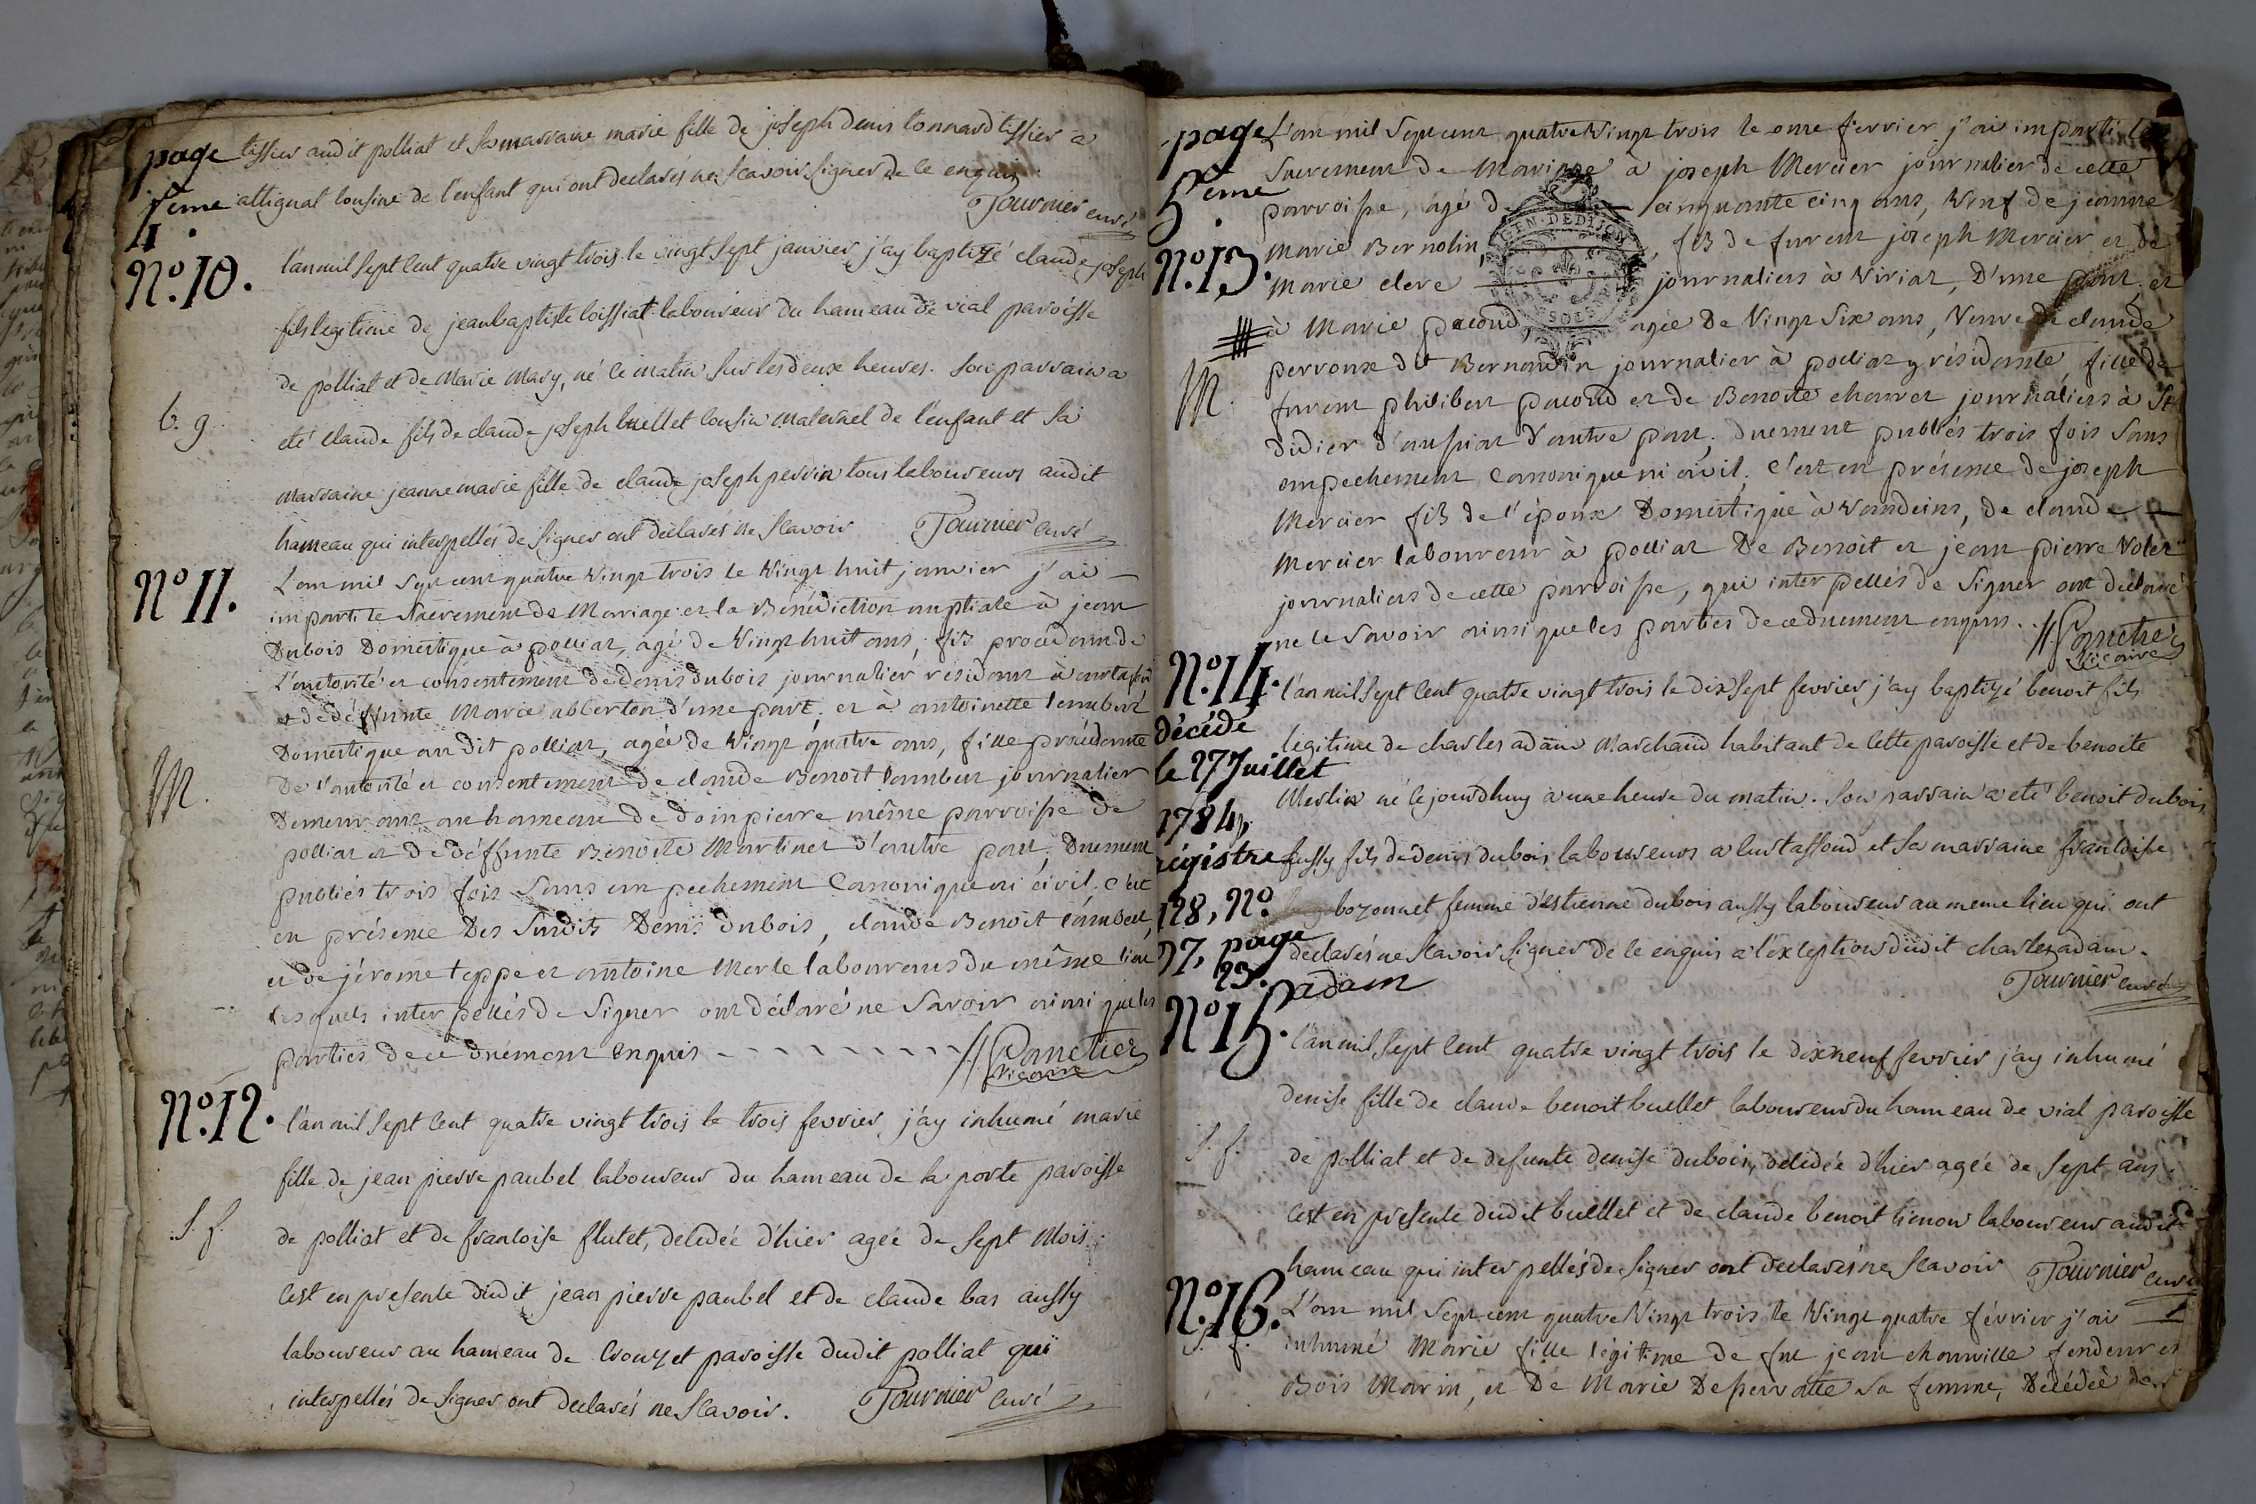 page
4.
ème
tissier audit polliat et sa marraine marie fille de joseph denis tonnard tissier a
attignat cousine de l'enfant qui ont declarés ne scavoir signer de ce enquis
Tournier curé
N.º 10.
l'an mil sept cent quatre vingt trois le vingt sept janvier j'ay baptizé claude joseph
fils legitime de jean baptiste loissiat laboureur du hameau de vial paroisse
de polliat et de Marie Mary, né ce matin sur les deux heures. son parrain a
b. g
eté claude fils de claude joseph buellet cousin maternel de l'enfant et sa
marraine jeanne marie fille de claude joseph perrin tous laboureurs audit
hameau qui interpellés de signer ont declarés ne scavoir Tournier curé
N.º 11.
L'an mil sept cent quatre vingt trois le vingt huit janvier j'ai
imparti le sacrement de Mariage et la Bénédiction nuptiale à jean
Dubois Domestique à polliat, agé de vingt huit ans, fils procédant de
L'autorité et consentement de denis dubois journalier résidant à
et de déffunte Marie abberton d'une part, et à antoinette lambert
Domestique au dit polliat, agée de vingt quatre ans, fille procédante
De l'autorité et consentement de claude Benoit lambert journalier
M.
Demeurant au hameau de dompierre même parroisse de
polliat et de déffunte Benoite Martinet d'autre part, Duement
publiés trois fois sans empechement Canonique ni civil. c'est
en présence Des susdits Denis dubois, claude Benoit lambert,
et de jérome teppe et antoine Merle laboureurs du même lieu
lesquels interpellés de signer ont déclaré ne savoir ainsi que les
parties de ce duëment enquis Panetier
vicaire
N.º 12.
l'an mil sept cent quatre vingt trois le trois fevrier j'ay inhumé marie
fille de jean pierre paubel laboureur du hameau de la porte paroisse
S. f.
de polliat et de francoise flutet, decedée d'hier agée de sept mois
c'est en presence dudit jean pierre paubel et de claude bas aussy
laboureur au hameau de Crouzet paroisse dudit polliat qui
interpellés de signer ont declarés ne scavoir. Tournier curé
page
5ème
.
L'an mil sept cent quatre vingt trois le onze fevrier j'ai imparti le
sacrement de Mariage à joseph Mercier journalier de cette
parroisse, agé de cinquante cinq ans, veuf de jeanne
N.º 13.
Marie Bernolin, fils de furent joseph Mercier et de
Marie clere journaliers à Viriat, D'une part, et
à Marie pacoud, agée De vingt six ans, Veuve de claude
perroux dit Bernardin journalier à polliat y résidante, fille de
M.
furent philibert pacoud et de Benoite chanet journaliers à St
didier d'aussiat d'autre part, duement publiés trois fois sans
empechement Canonique ni civil. c'est en présence de joseph
Mercier fils de l'époux Domestique à Vandeins, de claude
Mercier laboureur à polliat De Benoit et jean pierre Volet
journaliers de cette parroisse, qui interpellés de signer ont déclaré
ne le savoir ainsi que les parties de ce duement enquis. Panetier
vicaire
N.º 14.
l'an mil sept cent quatre vingt trois le dix sept fevrier j'ay baptizé benoit fils
décédé
le 27 Juillet
1784,
régistre
128, N.º
97, page
23.
legitime de charles adam Marchand habitant de cette paroisse et de benoite
Merlin né le jourd'huy a une heure du matin. son parrain a eté benoit dubois
aussy fils de denis dubois laboureurs a curtaffond et sa marraine francoise
bozonnet femme d'estienne dubois aussy laboureur au meme lieu qui ont
declarés ne scavoir signer de ce enquis a l'exception dudit charles adam.
adam
Tournier curé
N.º 15.
l'an mil sept cent quatre vingt trois le dix neuf fevrier j'ay inhumé
denise fille de claude benoit buellet laboureur du hameau de vial paroisse
S. f.
de polliat et de defunte denise dubois, decedée d'hier agée de sept ans
c'est en presence dudit buellet et de claude benoit tienon laboureur audit
hameau qui interpellés de signer ont declarés ne scavoir Tournier curé
N.º 16.
S. f.
L'an mil sept cent quatre vingt trois le vingt quatre février j'ai
inhumé Marie fille légitime de fut jean chanville fendeur et
Bois Marin, et De Marie Desservatte sa femme, Décédée de